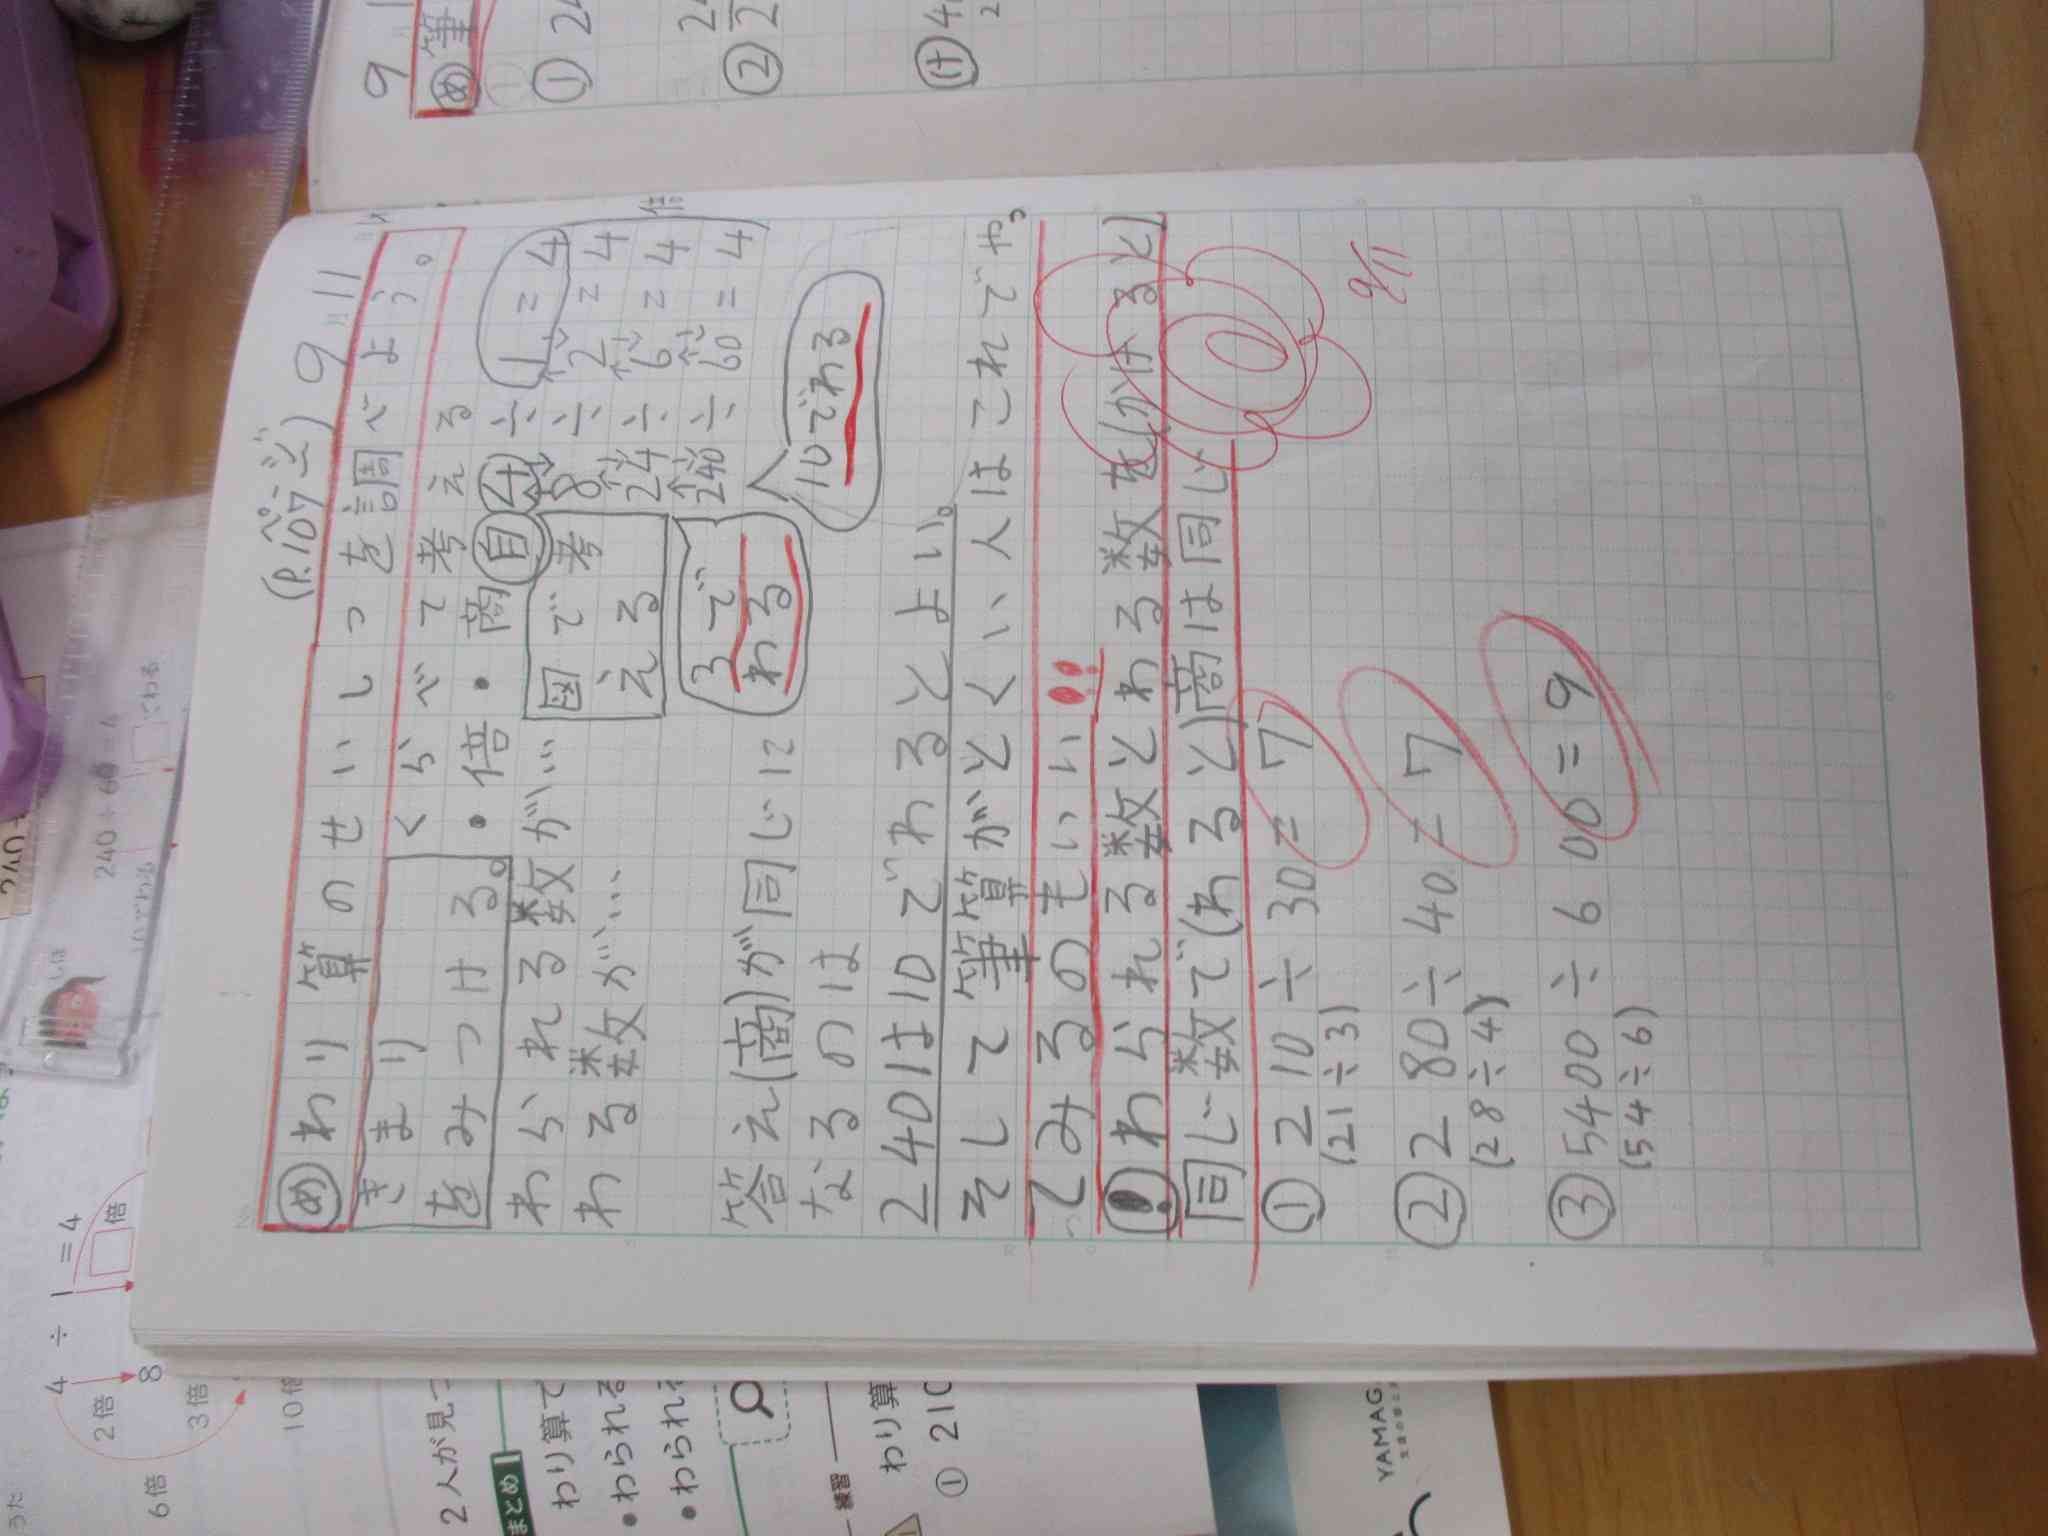 (P.107ページ) 9月11日
め わり算のせいしつを調べよう。
きまりをみつける。
くらべて考える
・倍・商
図で考える
自 4÷1=4
8÷2=4
24÷6=4
240÷60=4
倍
われる数が…
わる数が…
3でわる
10でわる
答え(商)が同じに
なるのは
240は10でわるとよい。
そして筆算がとくい人はこれでやっ
てみるのもいい!!
! わられる数とわる数を(かけると)
同じ数で(わると)商は同じ
① 210÷30=7
(21÷3)
② 280÷40=7
(28÷4)
③ 5400÷600=9
(54÷6)
9/11
9
め 筆
① 2
②
4÷1=4
8
2倍
3倍
6倍
10倍
倍
240÷60=4
10でわる
でわる
2人が見つ
まとめ
わり算で
・わられる
・わられ
練習
わり算
① 210
YAMAG